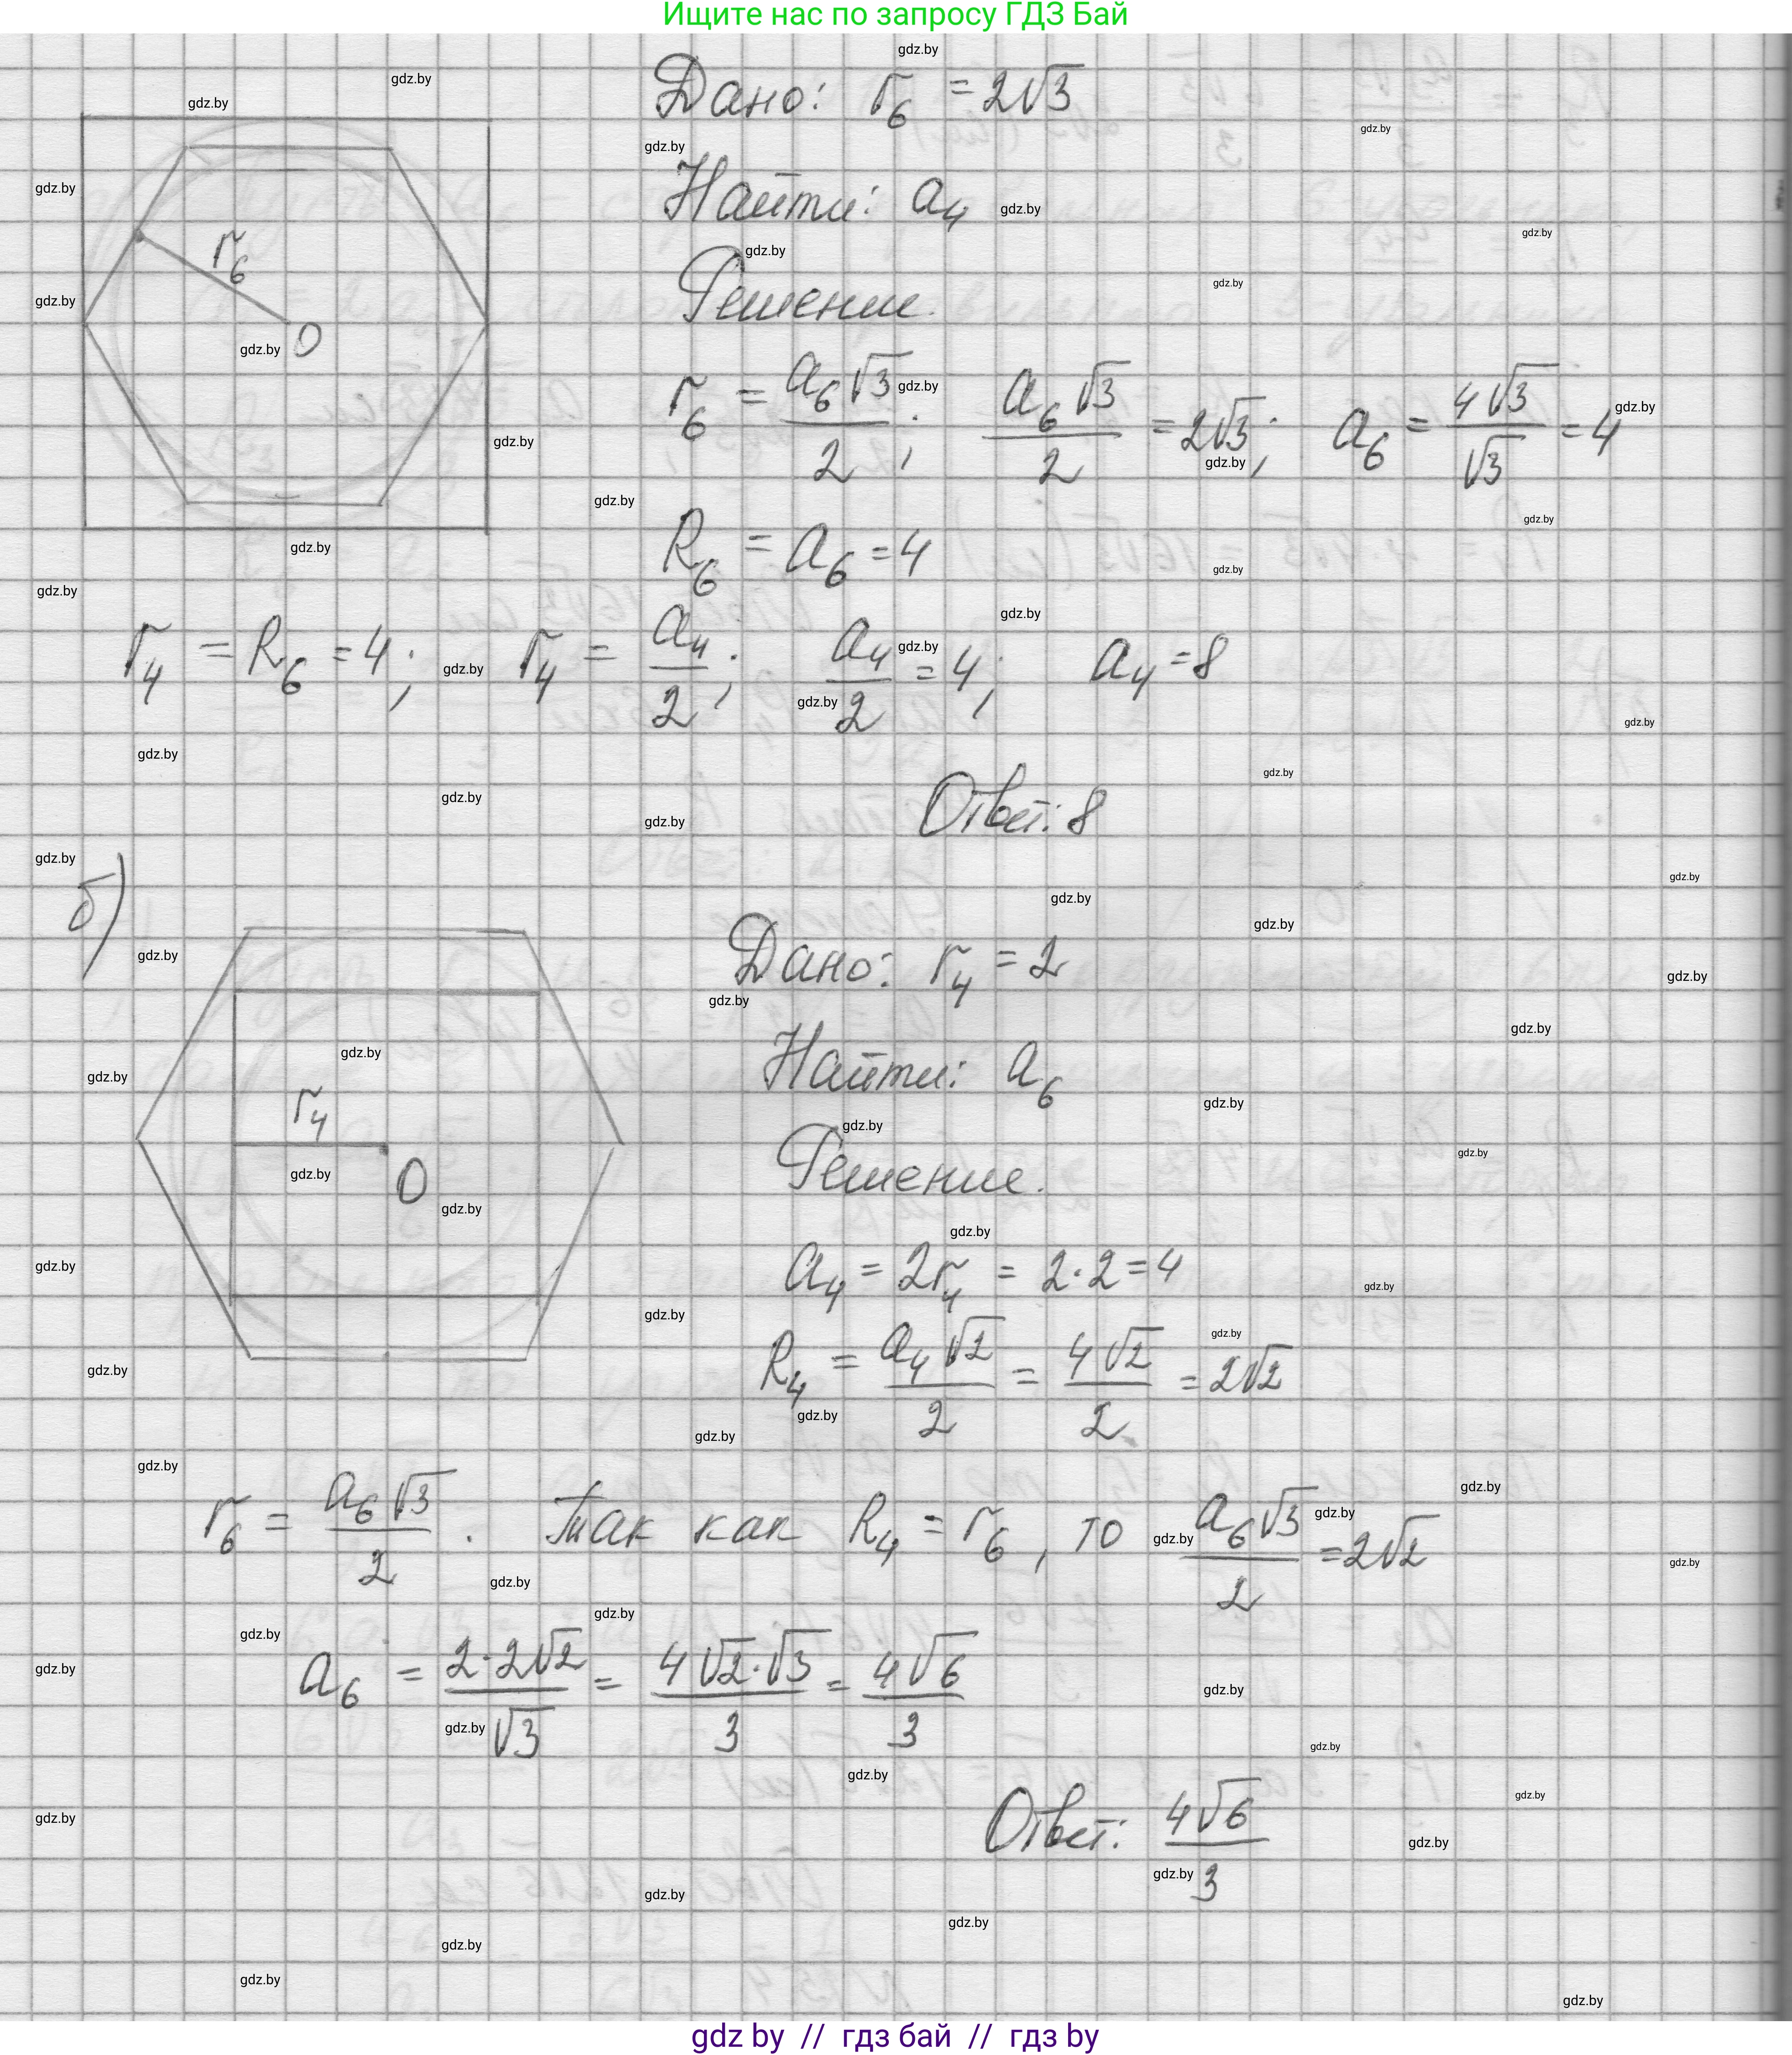 Ищите нас по запросу ГДЗ Бай
Дано: r₆ = 2√3
Найти: a₄
Решение.
r₆
O
r₆ = a₆√3/2; a₆√3/2 = 2√3; a₆ = 4√3/√3 = 4
R₆ = a₆ = 4
r₄ = R₆ = 4; r₄ = a₄/2; a₄/2 = 4; a₄ = 8
Ответ: 8
б)
Дано: r₄ = 2
Найти: a₆
Решение.
r₄
O
a₄ = 2r₄ = 2·2 = 4
R₄ = a₄√2/2 = 4√2/2 = 2√2
r₆ = a₆√3/2. Так как R₄ = r₆, то a₆√3/2 = 2√2
a₆ = 2·2√2/√3 = 4√2·√3/3 = 4√6/3
Ответ: 4√6/3
gdz by // гдз бай // гдз by